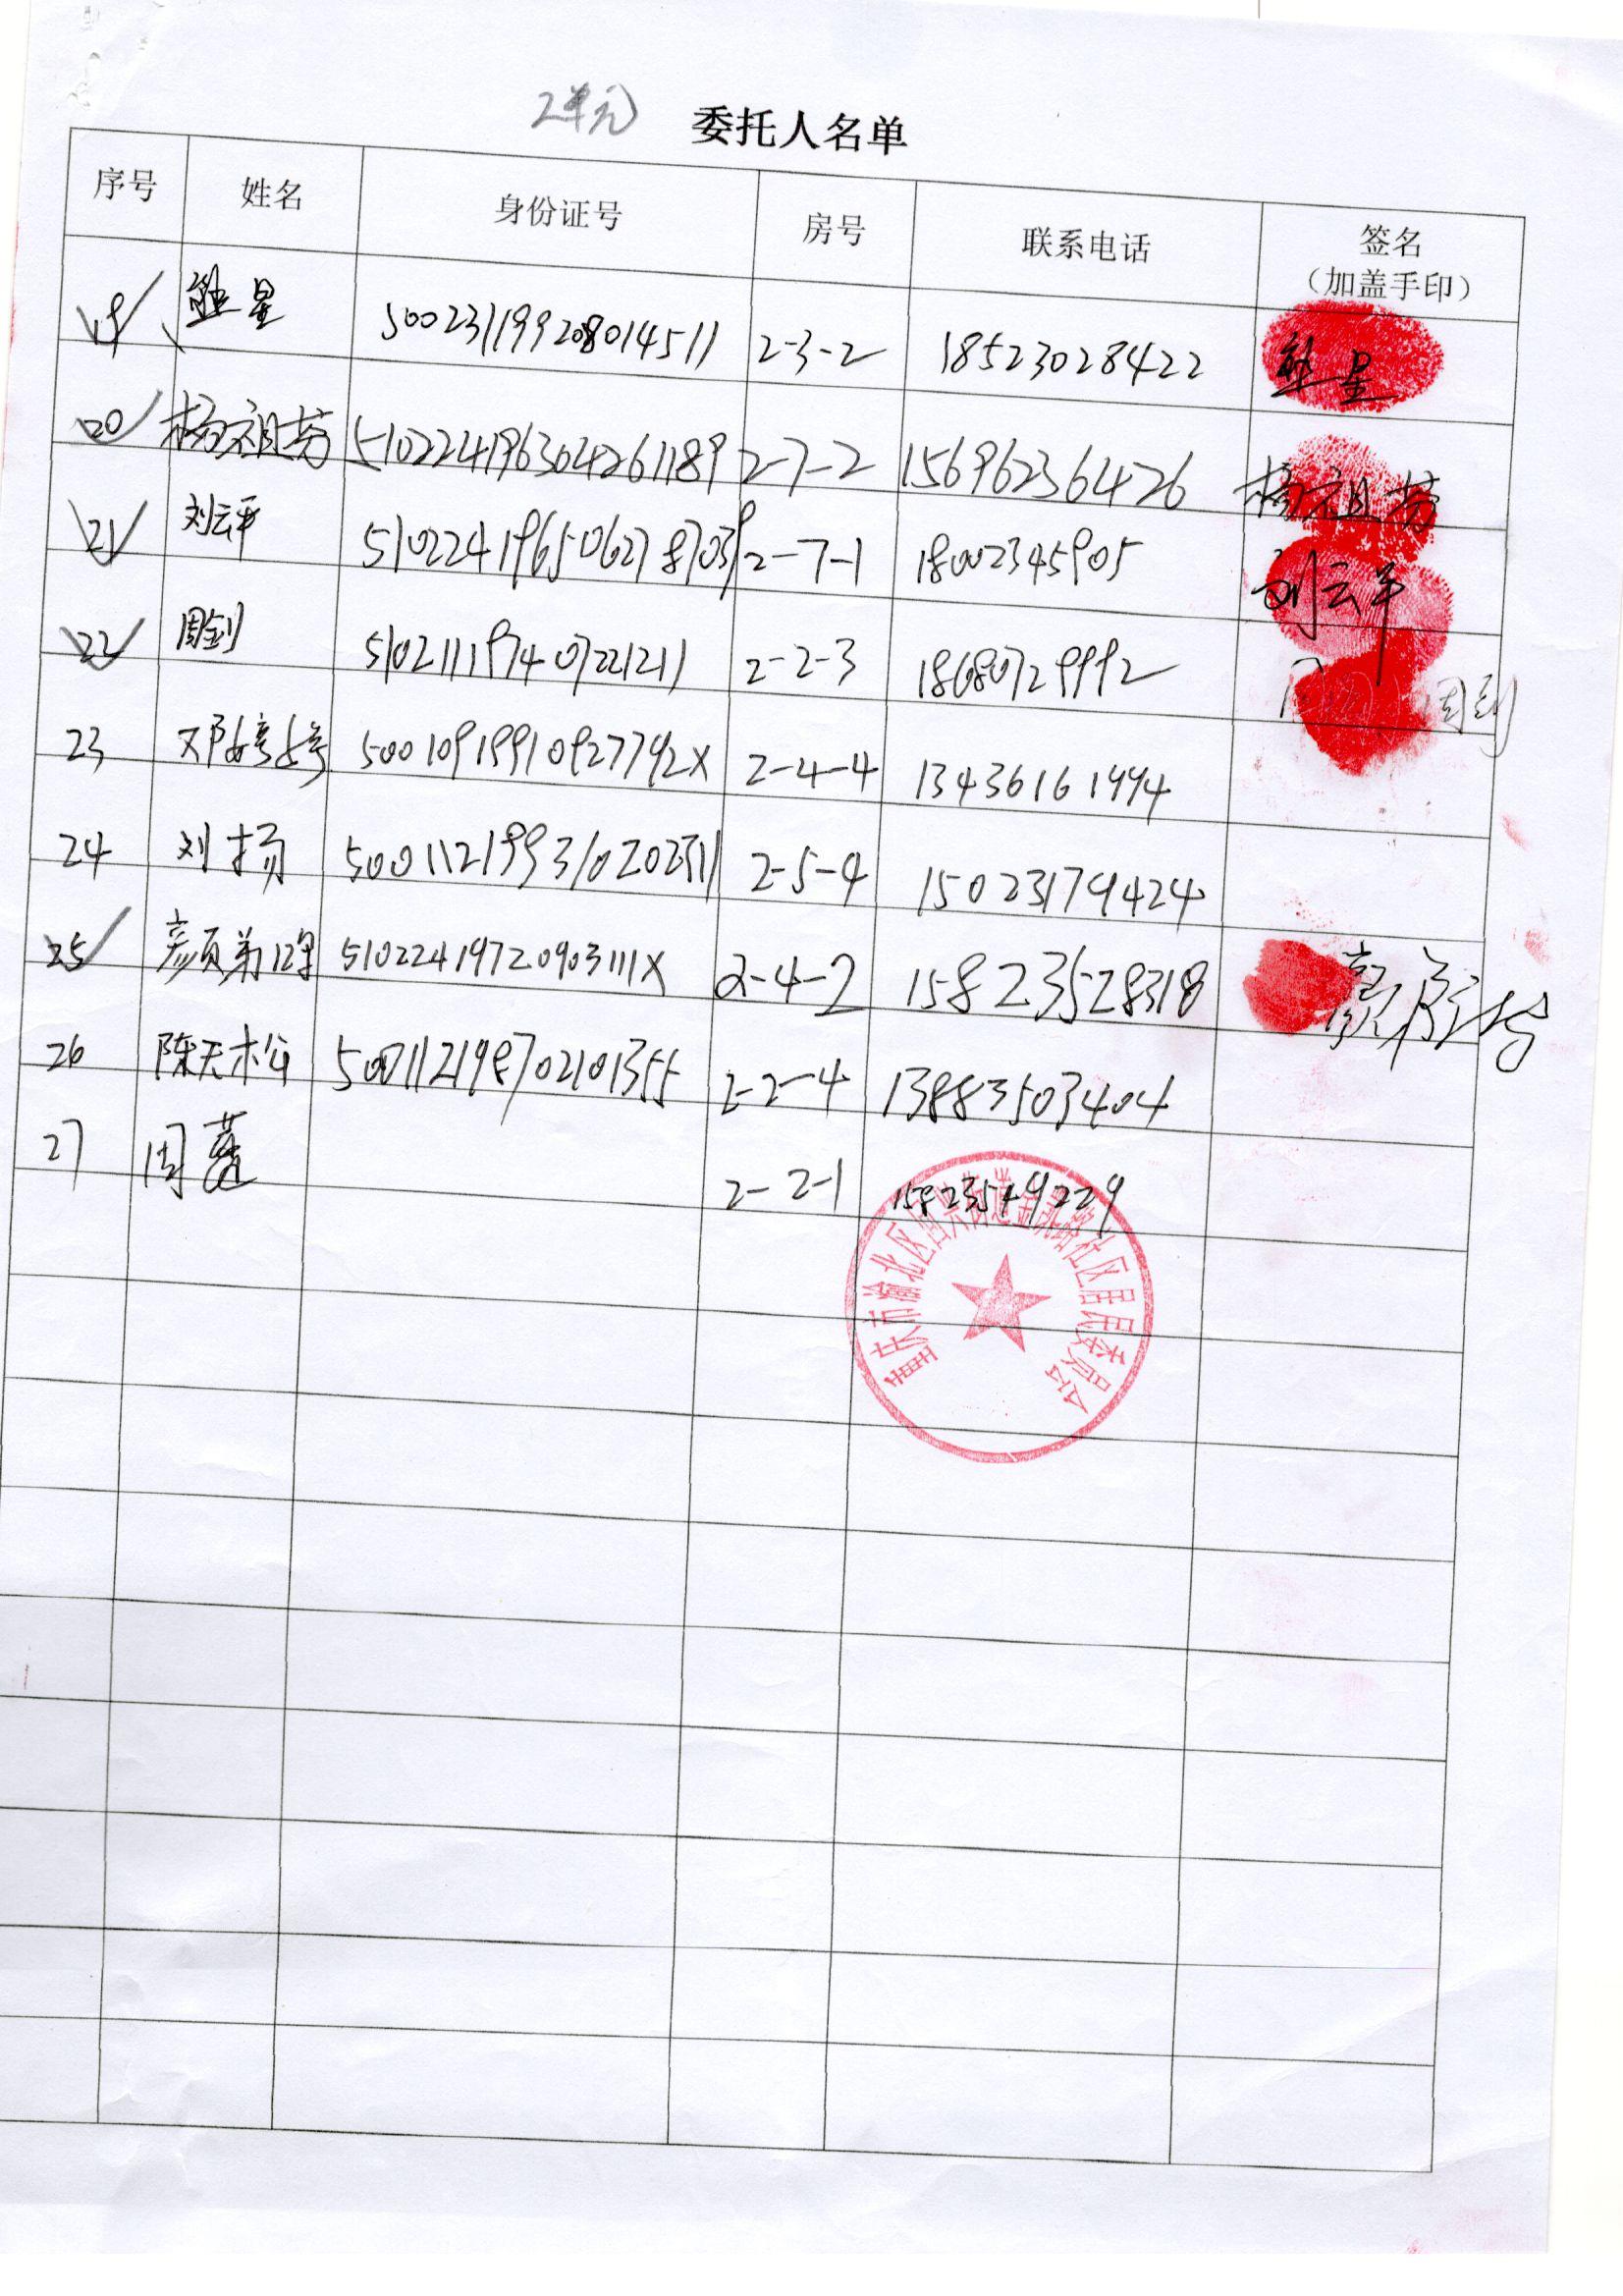 2单元 委托人名单
序号 姓名 身份证号 房号 联系电话 签名
（加盖手印）
19 星 500231199208014511 2-3-2 18523028422 星
20 杨祖芳 510224196304261189 2-7-2 15696236426 杨祖芳
21 刘云平 510224196506278703 2-7-1 18002345905 刘云平
22 周剑 510211197407221211 2-2-3 18680729992 周剑
23 邓婷婷 50010919910927792X 2-4-4 13436161994
24 刘扬 500112199310202311 2-5-4 15023179424
25 颜弟 51022419720903111X 2-4-2 15823528318 颜
26 陈天松 500112198702101355 2-2-4 13883503404
27 周 2-2-1 15823549229
重庆市渝北区回兴街道金凯路社区居民委员会